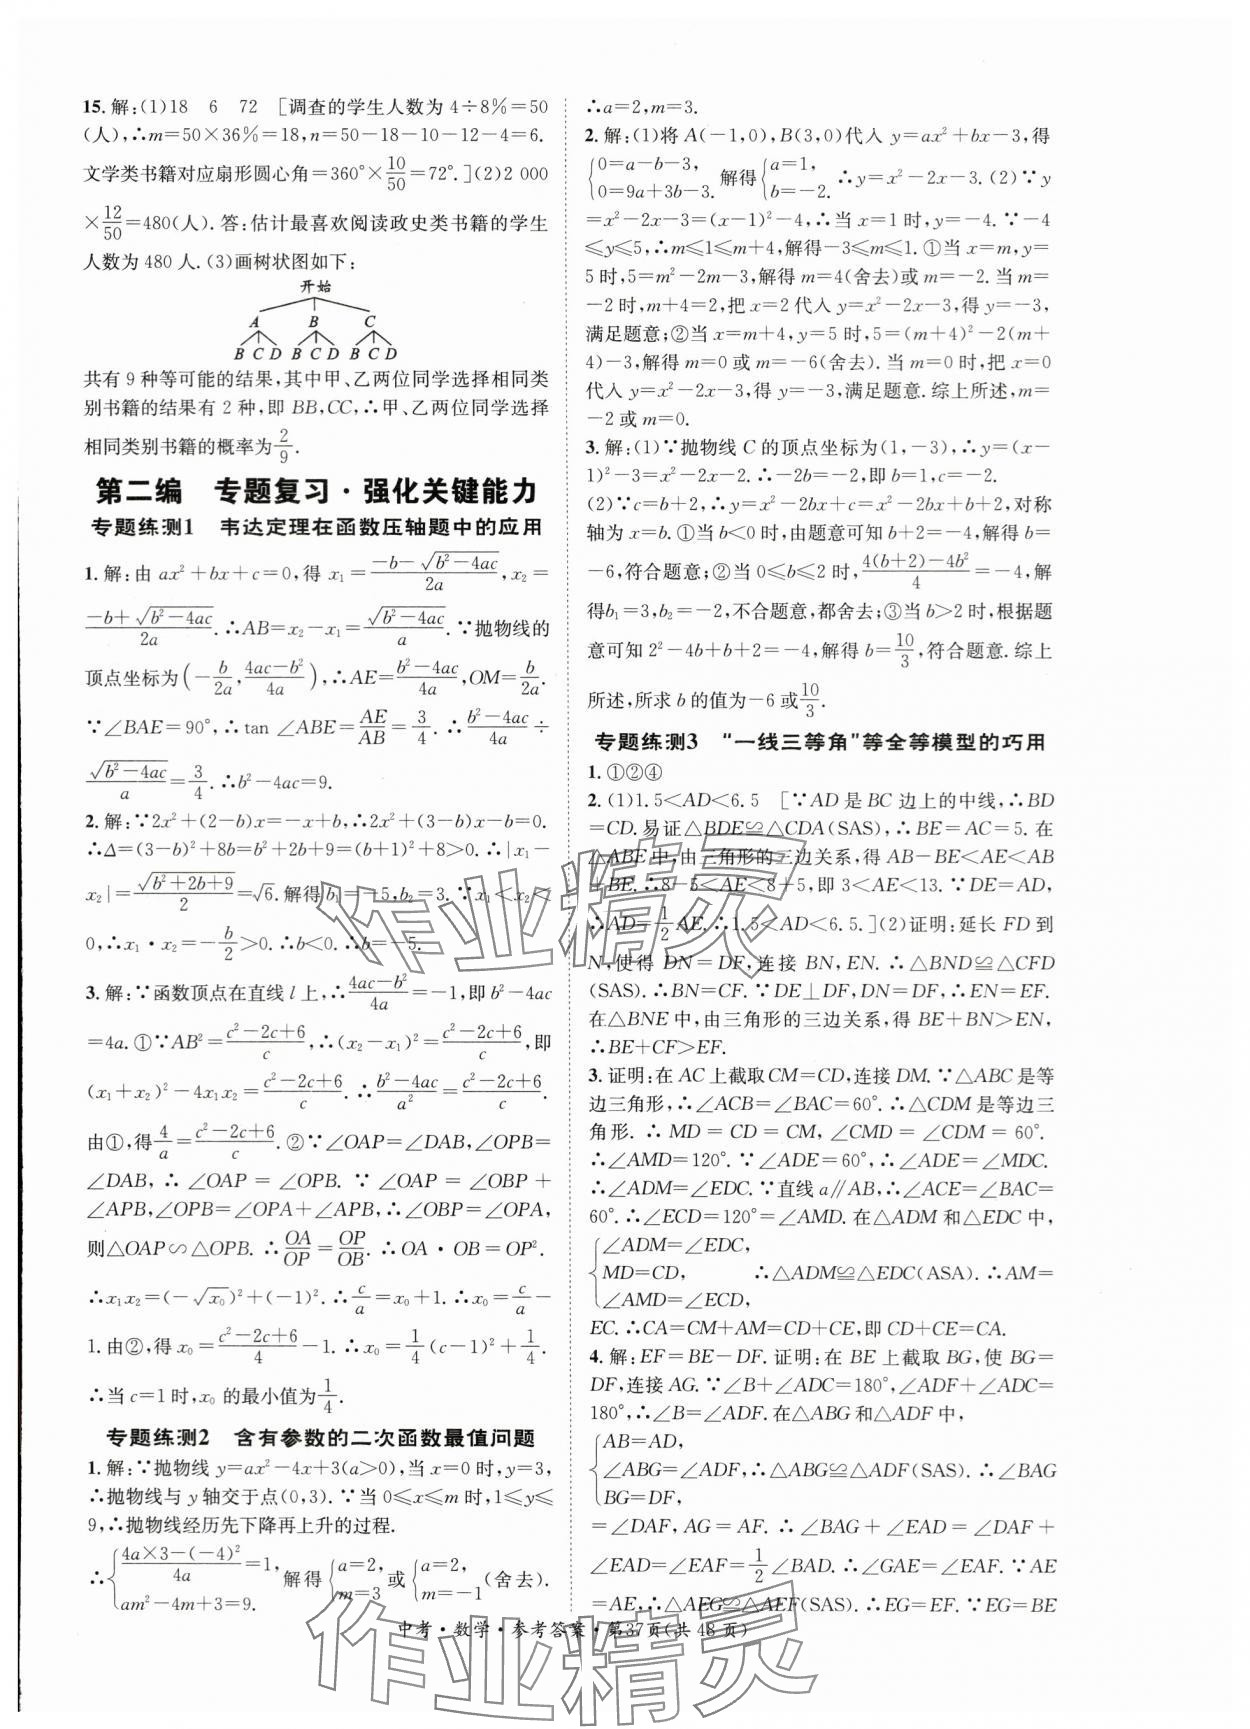 15.解:(1)18 6 72 [调查的学生人数为4÷8%=50
(人),∴m=50×36%=18,n=50-18-10-12-4=6.
文学类书籍对应扇形圆心角=360°×10/50=72°.](2)2 000
×12/50=480(人).答:估计最喜欢阅读政史类书籍的学生
人数为480人.(3)画树状图如下:
开始
A B C
B C D B C D B C D
共有9种等可能的结果,其中甲、乙两位同学选择相同类
别书籍的结果有2种,即BB,CC,∴甲、乙两位同学选择
相同类别书籍的概率为2/9.
第二编 专题复习·强化关键能力
专题练测1 韦达定理在函数压轴题中的应用
1.解:由ax²+bx+c=0,得x₁=(-b-√(b²-4ac))/2a,x₂=
(-b+√(b²-4ac))/2a.∴AB=x₂-x₁=√(b²-4ac)/a.∵抛物线的
顶点坐标为(-b/2a,(4ac-b²)/4a),∴AE=(b²-4ac)/4a,OM=b/2a.
∵∠BAE=90°,∴tan∠ABE=AE/AB=3/4.∴(b²-4ac)/4a÷
√(b²-4ac)/a=3/4.∴b²-4ac=9.
2.解:∵2x²+(2-b)x=-x+b,∴2x²+(3-b)x-b=0.
∴Δ=(3-b)²+8b=b²+2b+9=(b+1)²+8>0.∴|x₁-
x₂|=√(b²+2b+9)/2=√6.解得b₁=-5,b₂=3.∵x₁<x₂<
0,∴x₁·x₂=-b/2>0.∴b<0.∴b=-5.
3.解:∵函数顶点在直线l上,∴(4ac-b²)/4a=-1,即b²-4ac
=4a.①∵AB²=(c²-2c+6)/c,∴(x₂-x₁)²=(c²-2c+6)/c,即
(x₁+x₂)²-4x₁x₂=(c²-2c+6)/c.∴(b²-4ac)/a²=(c²-2c+6)/c.
由①,得4/a=(c²-2c+6)/c.②∵∠OAP=∠DAB,∠OPB=
∠DAB,∴∠OAP=∠OPB.∵∠OAP=∠OBP+
∠APB,∠OPB=∠OPA+∠APB,∴∠OBP=∠OPA,
则△OAP∽△OPB.∴OA/OP=OP/OB.∴OA·OB=OP².
∴x₁x₂=(-√x₀)²+(-1)².∴c/a=x₀+1.∴x₀=c/a-
1.由②,得x₀=(c²-2c+6)/4-1.∴x₀=1/4(c-1)²+1/4.
∴当c=1时,x₀的最小值为1/4.
专题练测2 含有参数的二次函数最值问题
1.解:∵抛物线y=ax²-4x+3(a>0),当x=0时,y=3,
∴抛物线与y轴交于点(0,3).∵当0≤x≤m时,1≤y≤
9,∴抛物线经历先下降再上升的过程.
∴{(4a×3-(-4)²)/4a=1, am²-4m+3=9. 解得{a=2, m=3 或{a=2, m=-1 (舍去).
∴a=2,m=3.
2.解:(1)将A(-1,0),B(3,0)代入y=ax²+bx-3,得
{0=a-b-3, 0=9a+3b-3. 解得{a=1, b=-2. ∴y=x²-2x-3.(2)∵y
=x²-2x-3=(x-1)²-4,∴当x=1时,y=-4.∵-4
≤y≤5,∴m≤1≤m+4,解得-3≤m≤1.①当x=m,y=
5时,5=m²-2m-3,解得m=4(舍去)或m=-2.当m=
-2时,m+4=2,把x=2代入y=x²-2x-3,得y=-3,
满足题意;②当x=m+4,y=5时,5=(m+4)²-2(m+
4)-3,解得m=0或m=-6(舍去).当m=0时,把x=0
代入y=x²-2x-3,得y=-3,满足题意.综上所述,m=
-2或m=0.
3.解:(1)∵抛物线C的顶点坐标为(1,-3),∴y=(x-
1)²-3=x²-2x-2.∴-2b=-2,即b=1,c=-2.
(2)∵c=b+2,∴y=x²-2bx+c=x²-2bx+b+2,对称
轴为x=b.①当b<0时,由题意可知b+2=-4,解得b=
-6,符合题意;②当0≤b≤2时,(4(b+2)-4b²)/4=-4,解
得b₁=3,b₂=-2,不合题意,都舍去;③当b>2时,根据题
意可知2²-4b+b+2=-4,解得b=10/3,符合题意.综上
所述,所求b的值为-6或10/3.
专题练测3 “一线三等角”等全等模型的巧用
1.①②④
2.(1)1.5<AD<6.5 [∵AD是BC边上的中线,∴BD
=CD.易证△BDE≌△CDA(SAS),∴BE=AC=5.在
△ABE中,由三角形的三边关系,得AB-BE<AE<AB
+BE.∴8-5<AE<8+5,即3<AE<13.∵DE=AD,
∴AD=1/2AE.∴1.5<AD<6.5.](2)证明:延长FD到
N,使得DN=DF,连接BN,EN.∴△BND≌△CFD
(SAS).∴BN=CF.∵DE⊥DF,DN=DF,∴EN=EF.
在△BNE中,由三角形的三边关系,得BE+BN>EN,
∴BE+CF>EF.
3.证明:在AC上截取CM=CD,连接DM.∵△ABC是等
边三角形,∴∠ACB=∠BAC=60°.∴△CDM是等边三
角形.∴MD=CD=CM,∠CMD=∠CDM=60°.
∴∠AMD=120°.∵∠ADE=60°,∴∠ADE=∠MDC.
∴∠ADM=∠EDC.∵直线a∥AB,∴∠ACE=∠BAC=
60°.∴∠ECD=120°=∠AMD.在△ADM和△EDC中,
{∠ADM=∠EDC, MD=CD, ∠AMD=∠ECD, ∴△ADM≌△EDC(ASA).∴AM=
EC.∴CA=CM+AM=CD+CE,即CD+CE=CA.
4.解:EF=BE-DF.证明:在BE上截取BG,使BG=
DF,连接AG.∵∠B+∠ADC=180°,∠ADF+∠ADC=
180°,∴∠B=∠ADF.在△ABG和△ADF中,
{AB=AD, ∠ABG=∠ADF, BG=DF, ∴△ABG≌△ADF(SAS).∴∠BAG
=∠DAF,AG=AF.∴∠BAG+∠EAD=∠DAF+
∠EAD=∠EAF=1/2∠BAD.∴∠GAE=∠EAF.∵AE
=AE,∴△AEG≌△AEF(SAS).∴EG=EF.∵EG=BE
中考·数学·参考答案·第37页(共48页)
作业精灵
作业精灵